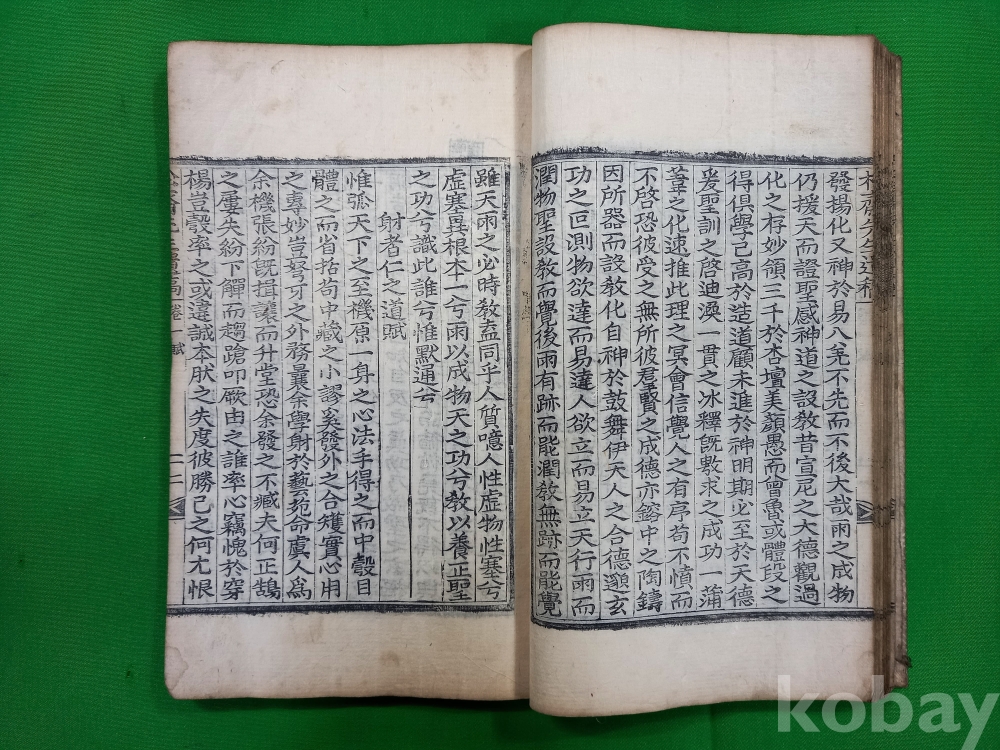 發揚化又神於易八羌不先而不後大哉雨之成物
仍援天而證聖感神道之設教昔宣尼之大德觀過
化之存妙領三千於杏壇美顔愚而曾魯或體段之
得俱學己高於造道顧未進於神明期必至於天德
爰聖訓之啓迪渙一貫之冰釋旣敷求之成功一蒲
葦之化速推此理之冥會信覺人之有序苟不憤而
不啓恐彼受之無所彼羣賢之成德亦鎔中之陶鑄
因所器而設教化自神於鼓舞伊天人之合德邈玄
功之叵測物欲達而易達人欲立而易立天行雨而
潤物聖設教而覺後雨有跡而能潤教無跡而能覺
雖天雨之必時教盍同乎人質噫人性虛物性塞兮
虛塞異根本一兮雨以成物天之功兮教以養正聖
之功兮識此誰兮惟默通兮
射者仁之道賦
惟弧天下之至機原一身之心法手得之而中彀目
體之而省括苟中藏之小謬奚發外之合矱實心用
之專妙豈弩牙之外務曩余學射於藝苑命虞人爲
余機張紛旣揖讓而升堂恐余發之不臧夫何正鵠
之屢失紛下觶而趨蹌叩厥由之誰率心竊愧於穿
楊豈彀率之或違誠本肰之失度彼勝己之何尤恨
卷一 賦
kobay